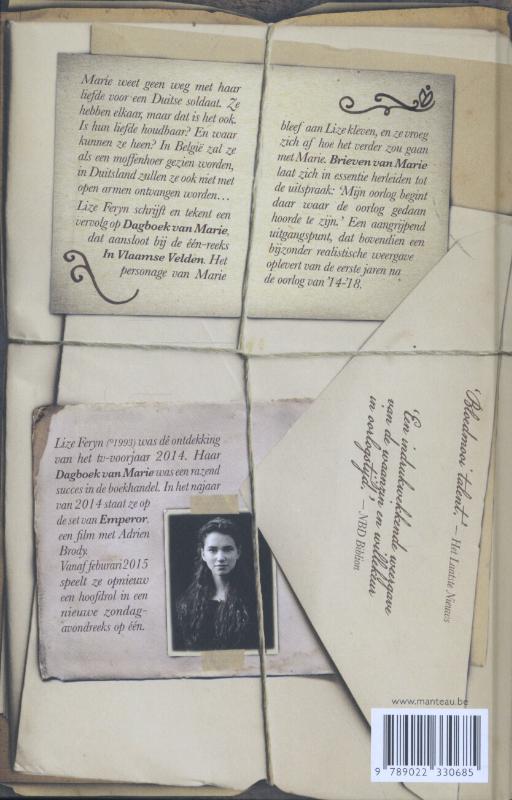 Marie weet geen weg met haar
liefde voor een Duitse soldaat. Ze
hebben elkaar, maar dat is het ook.
Is hun liefde houdbaar? En waar
kunnen ze heen? In België zal ze
als een moffenhoer gezien worden,
in Duitsland zullen ze ook niet met
open armen ontvangen worden…
Lize Feryn schrijft en tekent een
vervolg op Dagboek van Marie,
dat aansloot bij de één-reeks
In Vlaamse Velden. Het
personage van Marie
bleef aan Lize kleven, en ze vroeg
zich af hoe het verder zou gaan
met Marie. Brieven van Marie
laat zich in essentie herleiden tot
de uitspraak: ‘Mijn oorlog begint
daar waar de oorlog gedaan
hoorde te zijn.’ Een aangrijpend
uitgangspunt, dat bovendien een
bijzonder realistische weergave
oplevert van de eerste jaren na
de oorlog van ’14-’18.
Lize Feryn (°1993) was dé ontdekking
van het tv-voorjaar 2014. Haar
Dagboek van Marie was een razend
succes in de boekhandel. In het najaar
van 2014 staat ze op
de set van Emperor,
een film met Adrien
Brody.
Vanaf feburari 2015
speelt ze opnieuw
een hoofdrol in een
nieuwe zondag-
avondreeks op één.
‘Bloedmooi talent.’ — Het Laatste Nieuws
‘Een indrukwekkende weergave
van de waanzin en willekeur
in oorlogstijd.’ — NBD Biblion
www.manteau.be
9 789022 330685